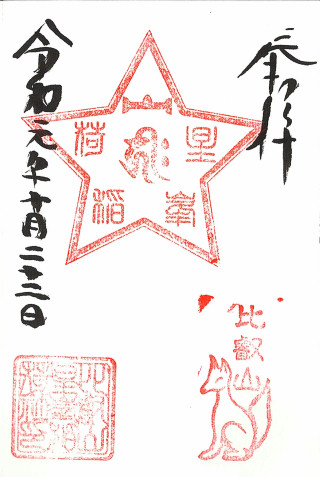 奉拝
星峯
稲荷
比叡山
令和元年十月二十三日